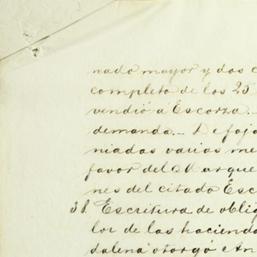 nado mayor y dos c
completo de los 25
vendió á Escorza._
demanda._ De foja
niadas varias me
favor del Marque
nes del citado Esc
31. Escritura de oblig
lor de las hacienda
salena otorgó e An